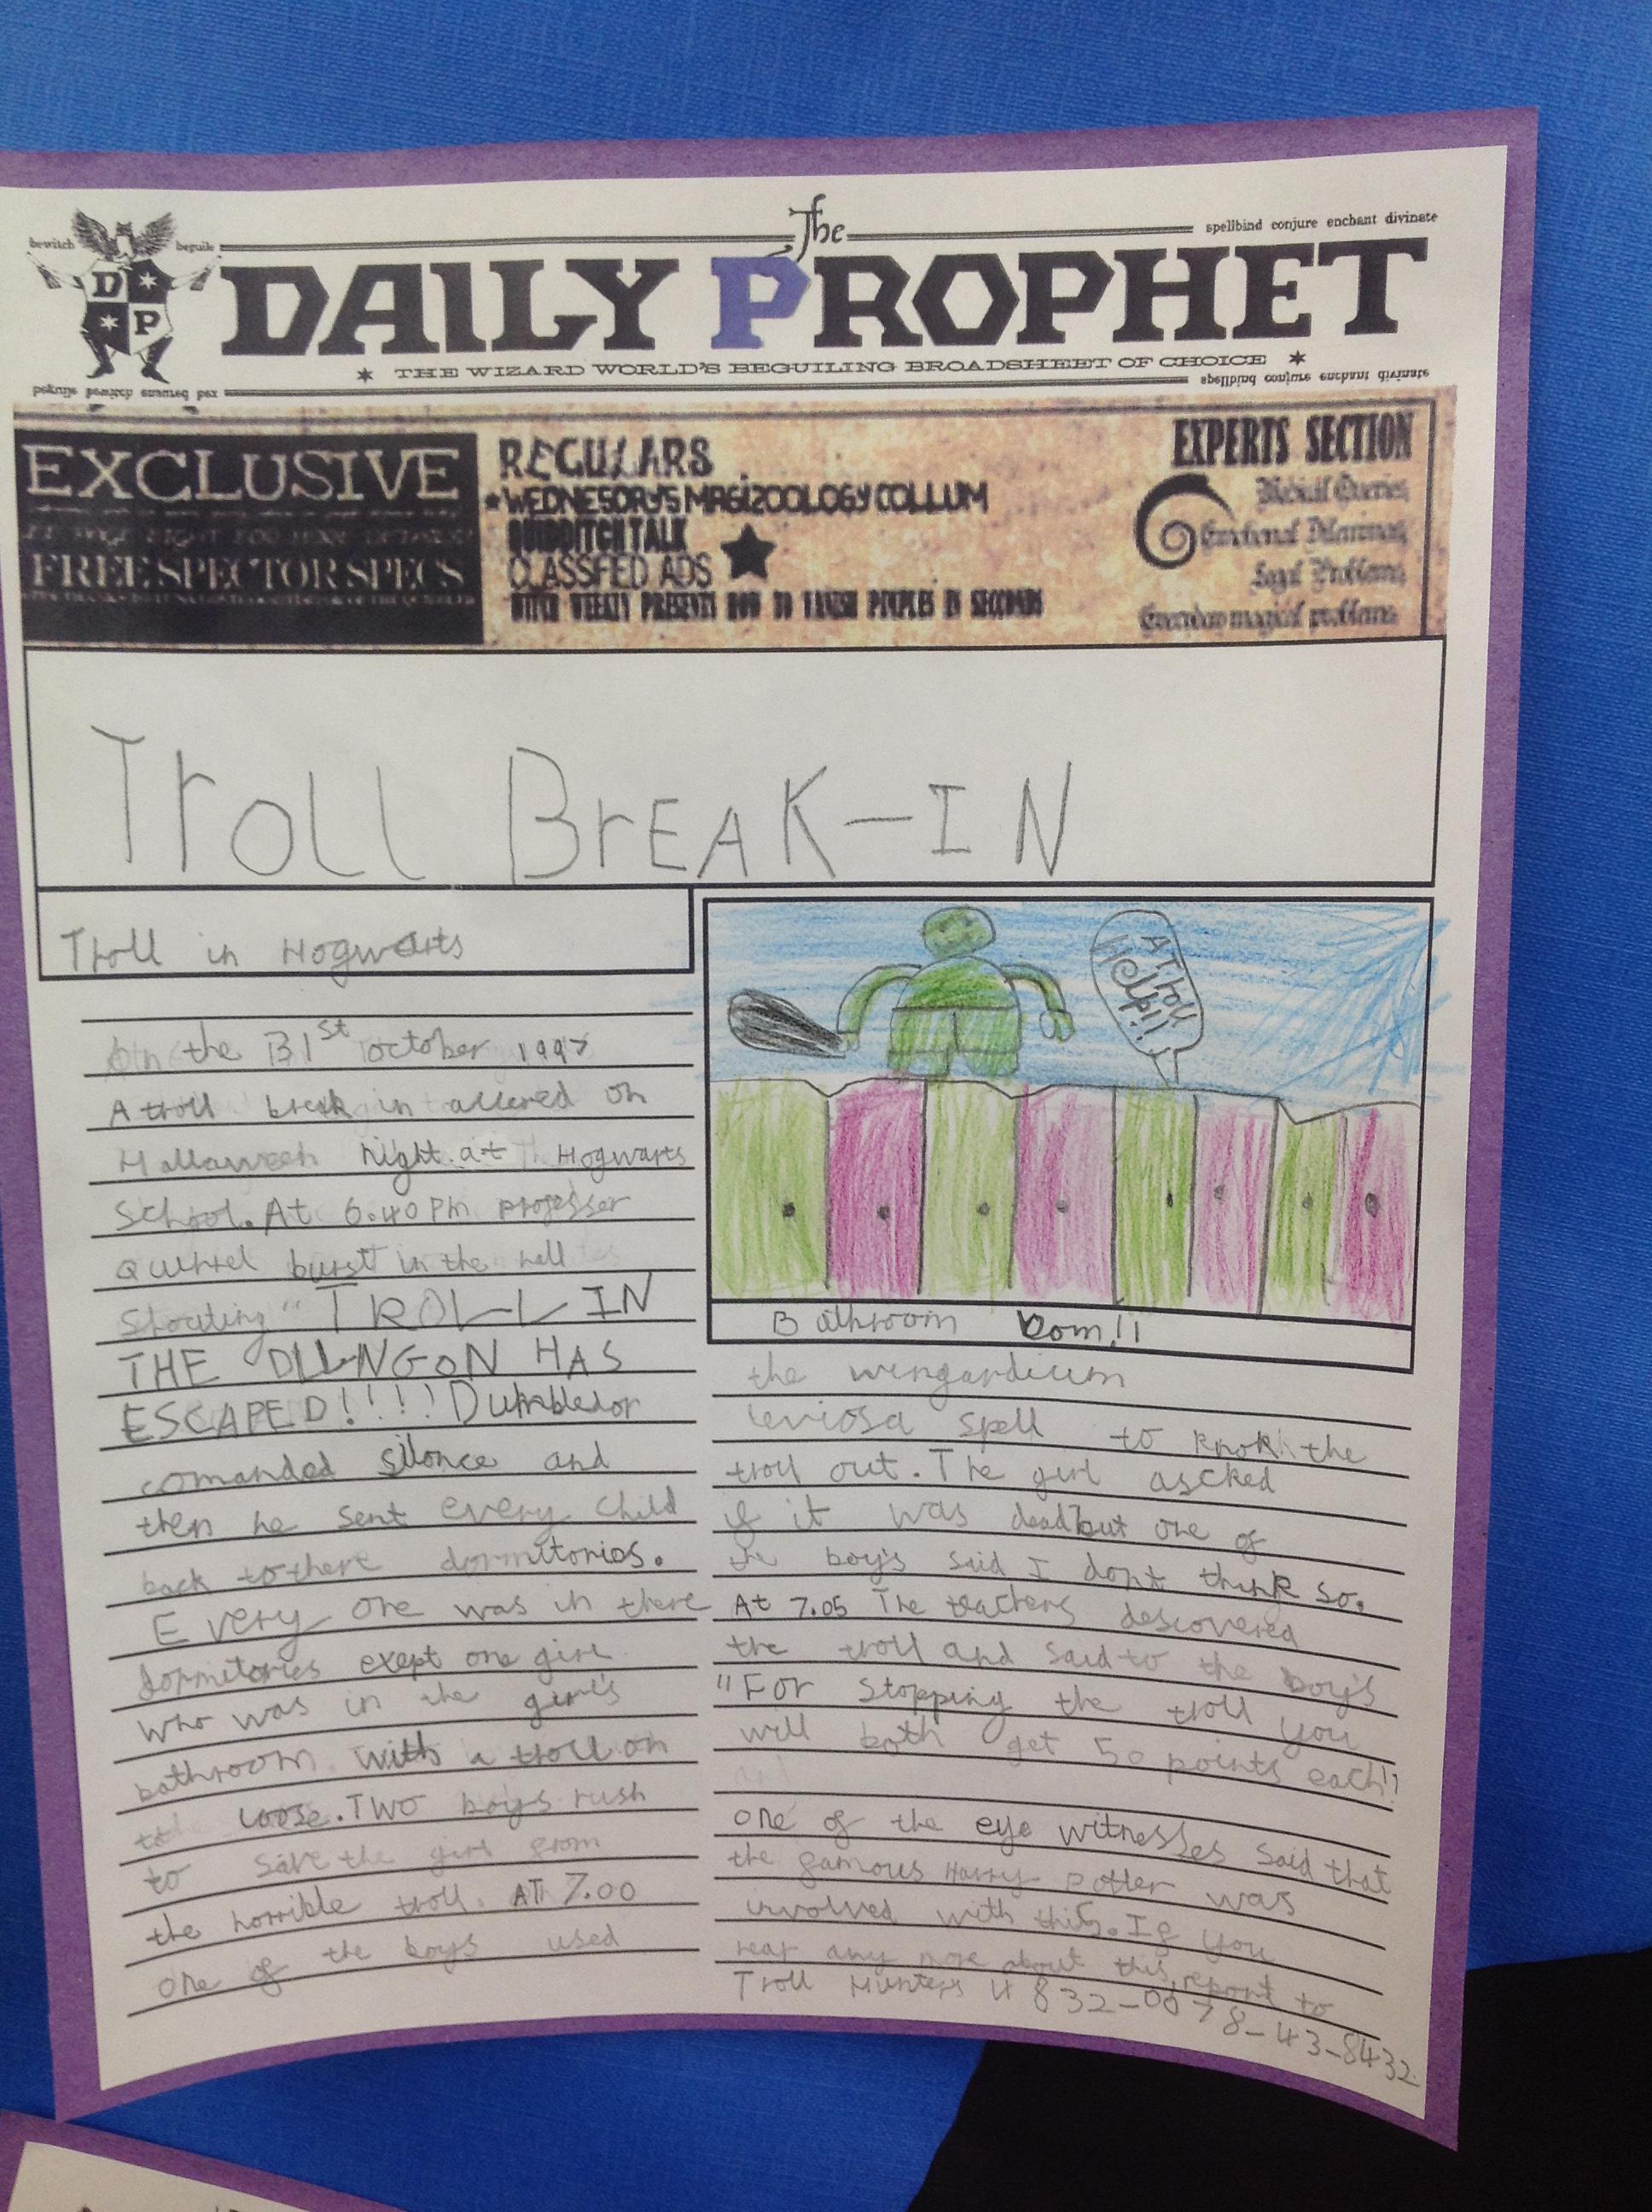 The
bewitch beguile
spellbind conjure enchant divinate
D P
DAILY PROPHET
THE WIZARD WORLD'S BEGUILING BROADSHEET OF CHOICE
spellbind conjure enchant divinate
EXCLUSIVE
FREE SPECTOR SPECS
REGULARS
WEDNESDRYS MAGIZOOLOGY COLLUM
QUIDDITCH TALK
CLASSFED ADS
WITCH WEEKLY PRESENTS HOW TO VANISH PIMPLES IN SECONDS
EXPERTS SECTION
Medical Queries
Emotional Dilemmas
Legal Problems
magical problems
Troll BrEAK-IN
Troll in Hogwarts
A Troll
Help!!
Bathroom Dom!!
On the 31st october
A troll break in accered on
Hallaween night at Hogwarts
School. At 6.40 pm professer
Quirrel burst in the hall
Shouting "TROLL IN
THE DUNGON HAS
ESCAPED!!!! Dumbledor
comanded silonce and
then he sent every child
back to there dormitorios.
Every one was in there
dormitories exept one girl
who was in the girl's
bathroom with a troll on
loose. TWO boys rush
to save the girl from
the horrible troll. AT 7.00
one of the boys used
the wingardium
leviosa spell to knok the
troll out. The girl ascked
if it was dead but one of
the boy's said I don't think so.
At 7.05 The teachers descovered
the troll and said to the boy's
"For stopping the troll you
will both get 50 points each!!
one of the eye witnesses said that
the famous Harry Potter was
involved with this. If you
any more about this, report to
Troll Hunters 4832-0078-43-8432